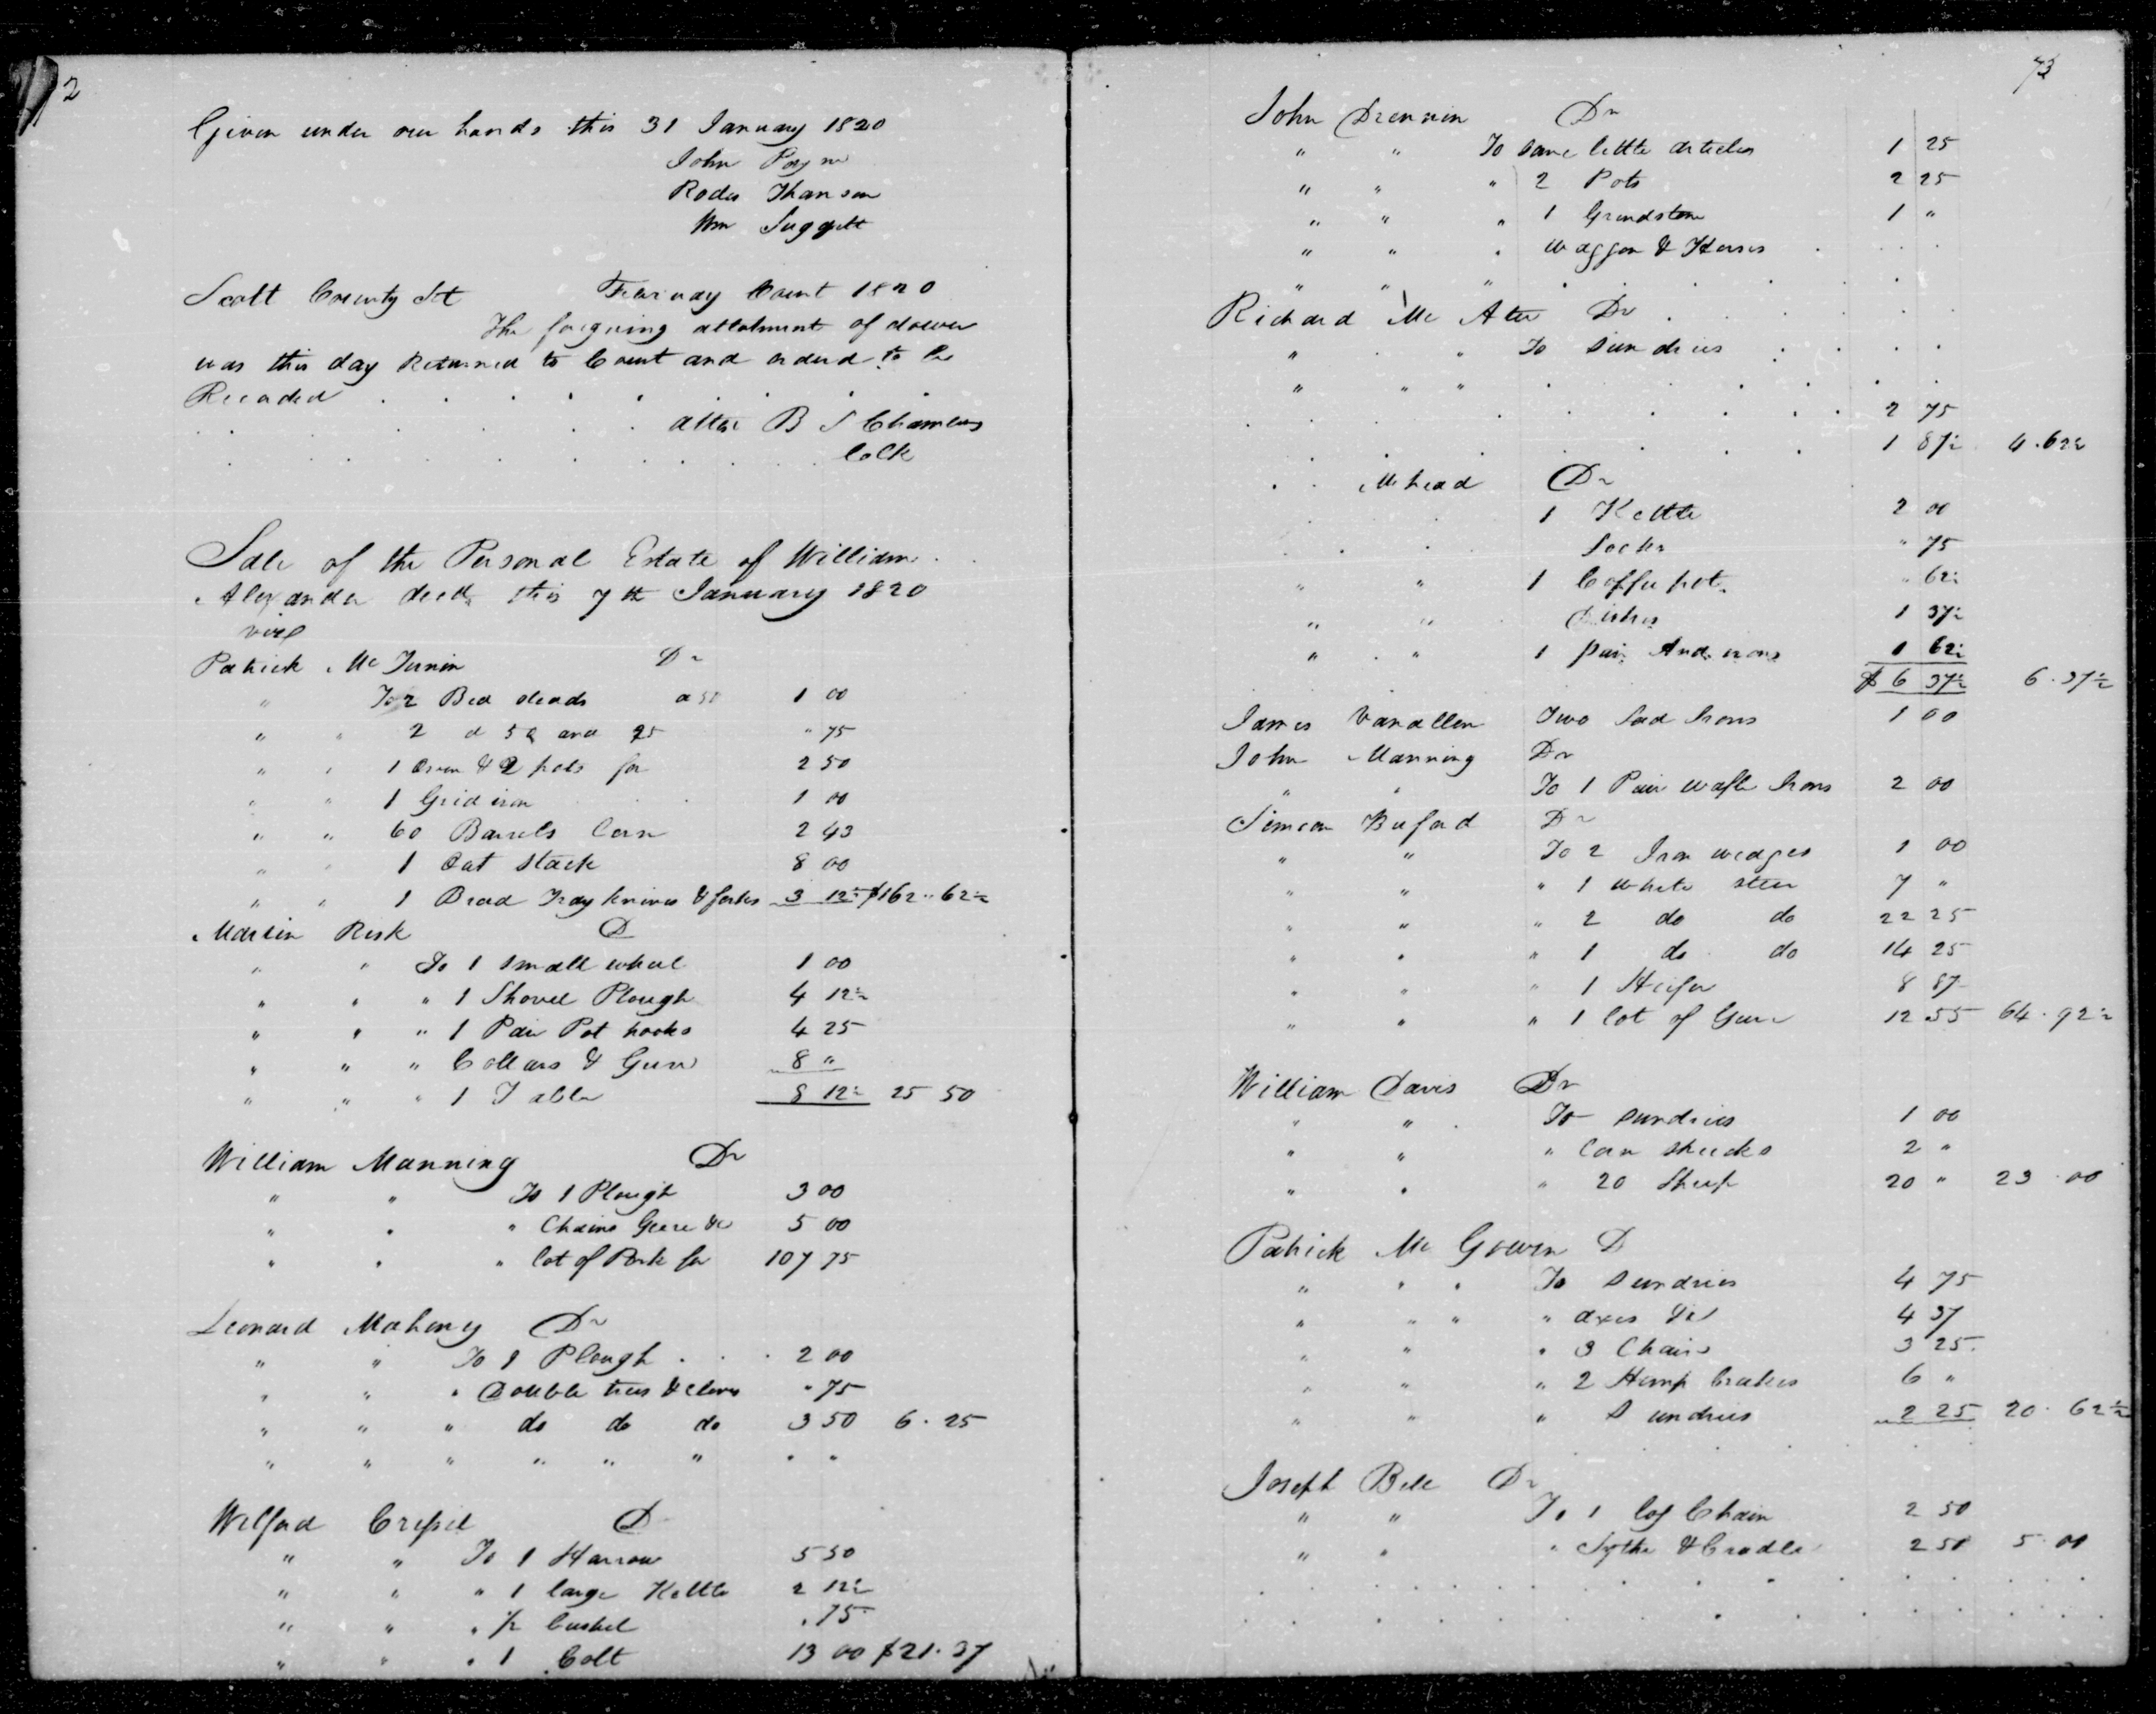 2
Given under our hands this 31 January 1820
John Payne
Rodes Thomson
Wm Suggett
Scott County Sct Febriuay Court 1820
The foregoing allotment of dower
was this day Returned to Court and orderd to be
Recorded
attest B S Chambers
Colk
Sale of the Personal Estate of William
Alexander decd, this 7th January 1820
Patrick Mc Junin Dr
" To 2 Bed steads a 50 1 00
" " 2 d 50 and 25 " 75
" " 1 Oven & 2 pots for 2 50
" " 1 Gridiron 1 00
" " 60 Barrels Corn 2 43
" " 1 Oat Stack 8 00
" " 1 Bread Tray knives & forks 3 12½ $162..62½
Martin Risk D
" " To 1 small wheel 1 00
" " " 1 Shovel Plough 4 12½
" " " 1 Pair Pot hooks 4 25
" " " Collars & Gears 8 "
" " " 1 Table 8 12½ 25 50
William Manning Dr
" " To 1 Plough 3 00
" " " Chains Geere &c 5 00
" " " lot of Pork for 107 75
Leonard Mahoney Dr
" " To 1 Plough 2 00
" " " Double trees & clevis " 75
" " " do do do 3 50 6.25
" " " " " " " "
Welford D
" " To 1 Harrow 5 50
" " " 1 large Kettle 2 12½
" " " ½ bushel .75
" " " 1 Colt 13 00 $21.37
73
John Drennin Dr
" " To some little articles 1 25
" " " 2 Pots 2 25
" " " 1 Grindstone 1 "
" " " waggon & Horses
" " "
Richard Mc Atee Dr
" " To Sundries
" " "
2 75
1 87½ 4.62½
Mchead Dr
1 Kettle 2 00
Socks " 75
" " 1 Coffee pot " 62½
" " Dishes 1 37½
" " 1 pair And irons 1 62½
$ 6 37½ 6.37½
James Vanallen Two Sad Irons 1 00
John Manning Dr
" " To 1 Pair wafle Irons 2 00
Simeon Buford Dr
" " To 2 Iron wedges 1 00
" " " 1 white steer 7 "
" " " 2 do do 22 25
" " " 1 do do 14 25
" " " 1 Heifer 8 87
" " " 1 lot of Geese 12 55 64.92½
William Davis Dr
" " To sundries 1 00
" " " Corn shucks 2 "
" " " 20 Sheep 20 " 23.00
Patrick Mc Gowen D
" " " To Sundries 4 75
" " " " axes &c 4 37
" " " 3 Chairs 3 25
" " " 2 Hemp brakes 6 "
" " " Sundries 2 25 20.62½
Joseph Bell Dr
" " To 1 log Chain 2 50
" " " Sythe & Cradle 2 50 5.00